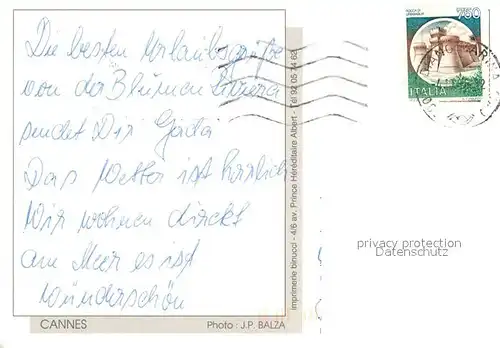 Die besten Urlaubsgrüße
von der Blumen Riviera
sendet Dir Gerda
Das Wetter ist herrlich
Wir wohnen direkt
am Meer es ist
wunderschön
CANNES
Photo : J.P. BALZA
imprimerie binucci - 4/6 av. Prince Héréditaire Albert - Tél 92 05 54 62
750
ITALIA
privacy protection
Datenschutz